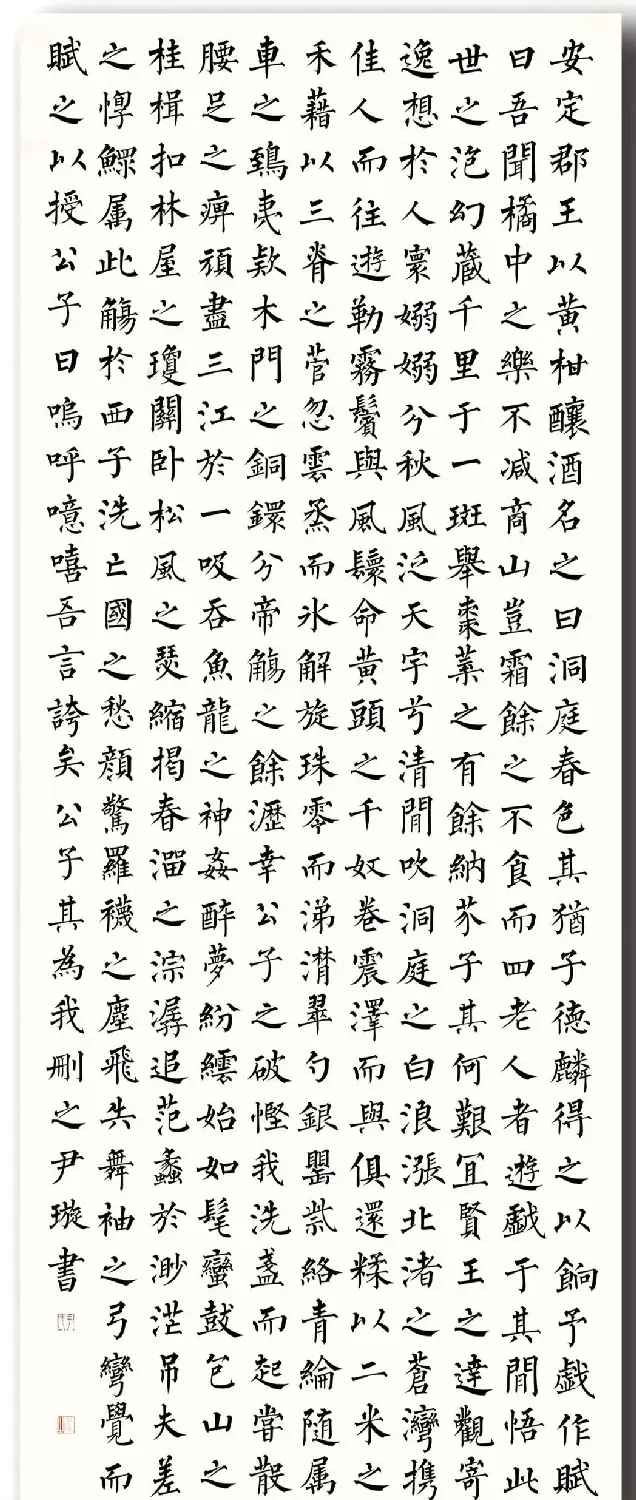 安定郡王以黄柑釀酒名之曰洞庭春色其猶子德麟得之以餉予戯作賦
曰吾聞橘中之樂不减商山豈霜餘之不食而四老人者遊戱于其間悟此
世之泡幻藏千里于一斑舉棗葉之有餘納芥子其何艱宜賢王之達觀寄
逸想於人寰嫋嫋兮秋風泛天宇兮清閒吹洞庭之白浪漲北渚之蒼灣携
佳人而往遊勒霧鬢與風鬟命黄頭之千奴卷震澤而與俱還糅以二米之
禾藉以三脊之菅忽雲烝而氷解旋珠零而涕潸翠勺銀罌紫絡青綸随属
車之鴟夷款木門之銅鐶分帝觴之餘瀝幸公子之破慳我洗盞而起嘗散
腰足之痺頑盡三江於一吸吞魚龍之神姦醉夢紛紜始如髦蠻鼓包山之
桂楫扣林屋之瓊關卧松風之瑟縮揭春溜之淙潺追范蠡於渺茫吊夫差
之惸鰥属此觴於西子洗亡國之愁顔驚羅襪之塵飛失舞袖之弓彎覺而
賦之以授公子曰嗚呼噫嘻吾言誇矣公子其為我刪之尹璇書